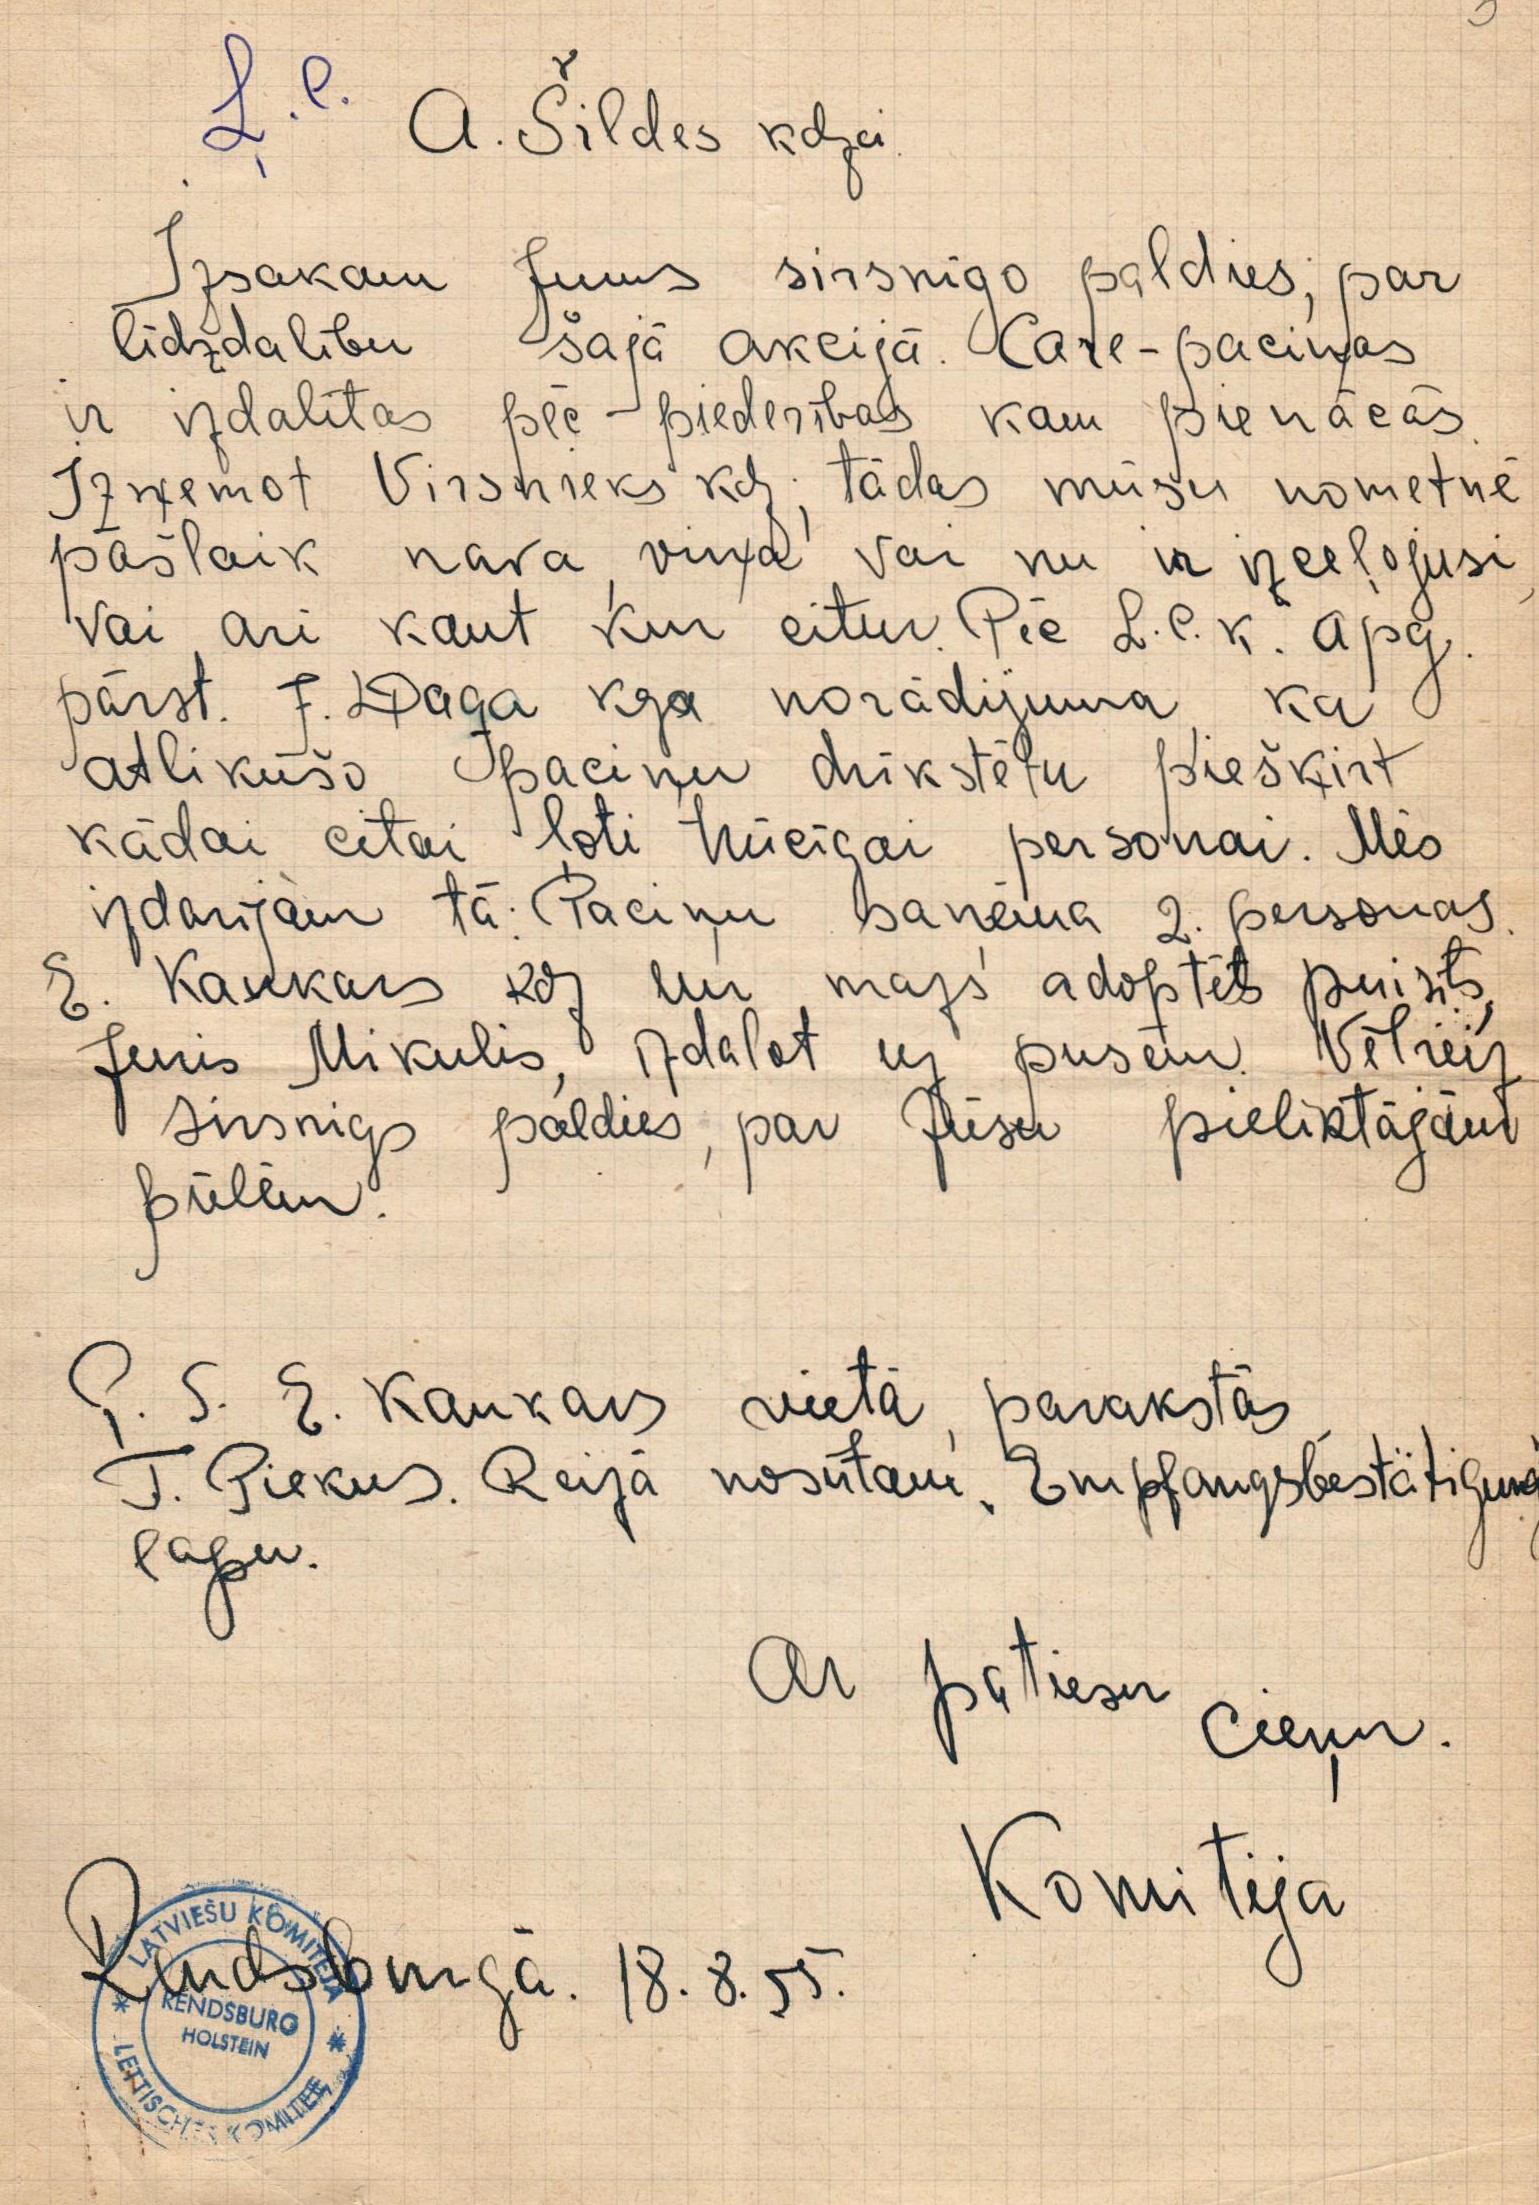 Ļ. c. A. Šildes kdzei.
Izsakam Jums sirsnīgo paldies, par
līdzdalību šajā akcijā. Care-paciņas
ir izdalītas pēc piederības kam pienācās.
Izņemot Virsnieks kdz, tādas mūsu nometnē
pašlaik nava, viņa vai nu ir izceļojusi,
vai ari kaut kur citur. Pēc L.C.K. apg.
pārst. J. Daga kga norādījuma, ka
atlikušo paciņu drīkstētu piešķirt
kādai citai ļoti trūcīgai personai. Mēs
izdarijām tā: Paciņu saņēma 2. personas.
E. Kaukars kdz un mazs adoptēts puisīts,
Juris Mikulis, izdalot uz pusēm. Vēlreiz
sirsnīgs paldies, par Jūsu pieliktājām
pūlēm.
P. S. E. Kaukars vietā, parakstās
T. Piekus. Reizā nosūtam, Empfangsbestätigung
lapu.
Ar patiesu
cieņu.
Komiteja
Rendsburgā. 18. 8. 55.
LATVIEŠU KOMITEJA
RENDSBURG
HOLSTEIN
LETTISCHES KOMITEE